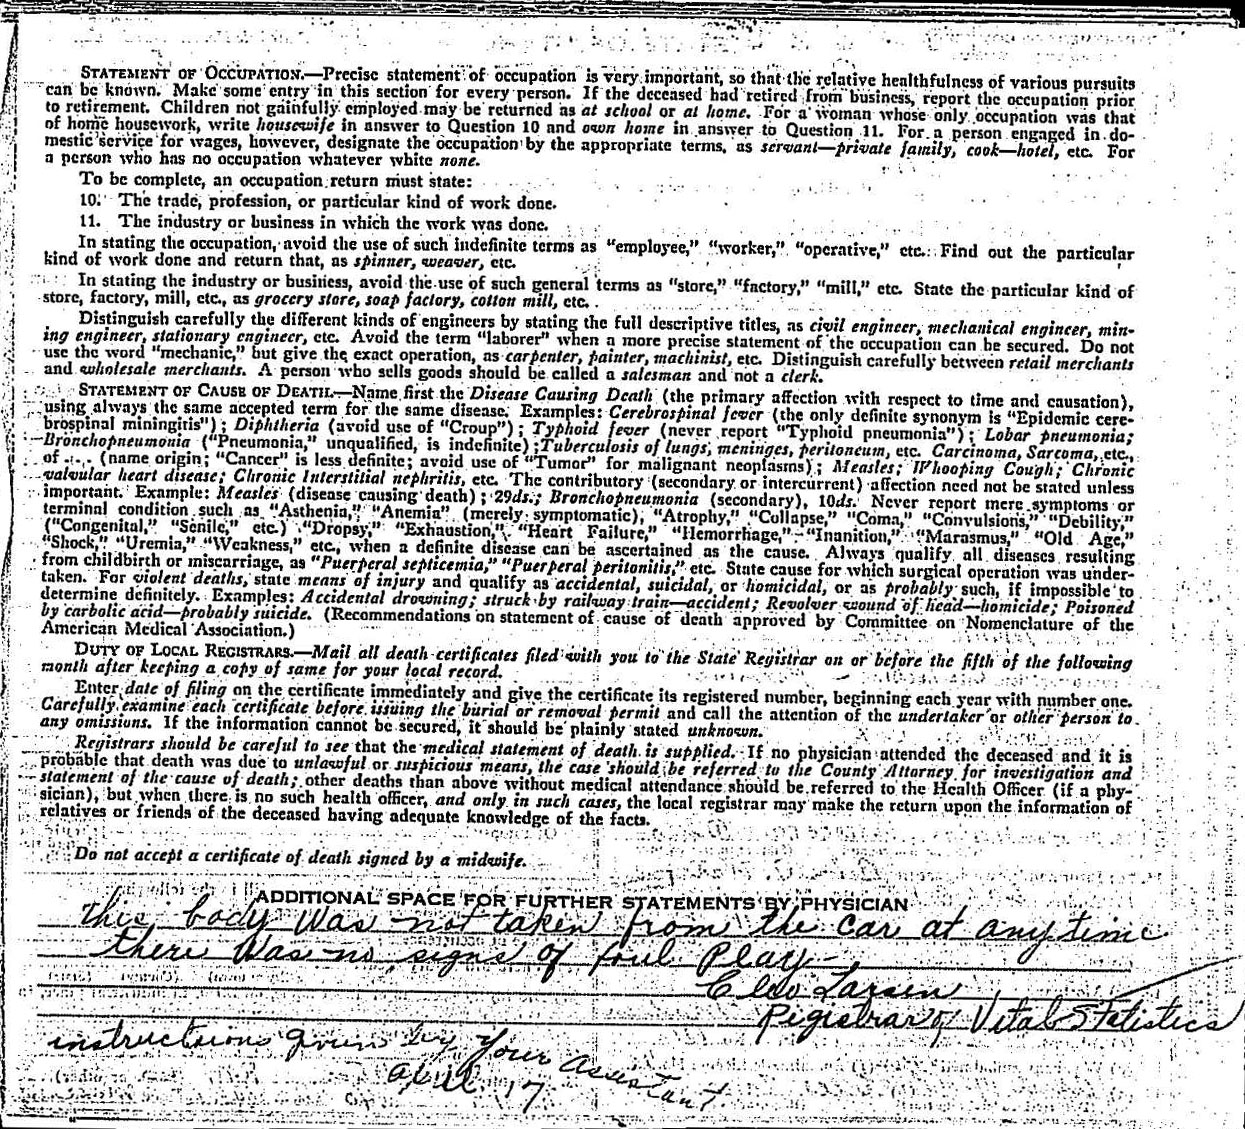 STATEMENT OF OCCUPATION.—Precise statement of occupation is very important, so that the relative healthfulness of various pursuits
can be known. Make some entry in this section for every person. If the deceased had retired from business, report the occupation prior
to retirement. Children not gainfully employed may be returned as at school or at home. For a woman whose only occupation was that
of home housework, write housewife in answer to Question 10 and own home in answer to Question 11. For a person engaged in do-
mestic service for wages, however, designate the occupation by the appropriate terms, as servant—private family, cook—hotel, etc. For
a person who has no occupation whatever white none.
To be complete, an occupation return must state:
10. The trade, profession, or particular kind of work done.
11. The industry or business in which the work was done.
In stating the occupation, avoid the use of such indefinite terms as “employee,” “worker,” “operative,” etc. Find out the particular
kind of work done and return that, as spinner, weaver, etc.
In stating the industry or business, avoid the use of such general terms as “store,” “factory,” “mill,” etc. State the particular kind of
store, factory, mill, etc., as grocery store, soap factory, cotton mill, etc.
Distinguish carefully the different kinds of engineers by stating the full descriptive titles, as civil engineer, mechanical engineer, min-
ing engineer, stationary engineer, etc. Avoid the term “laborer” when a more precise statement of the occupation can be secured. Do not
use the word “mechanic,” but give the exact operation, as carpenter, painter, machinist, etc. Distinguish carefully between retail merchants
and wholesale merchants. A person who sells goods should be called a salesman and not a clerk.
STATEMENT OF CAUSE OF DEATH.—Name first the Disease Causing Death (the primary affection with respect to time and causation),
using always the same accepted term for the same disease. Examples: Cerebrospinal fever (the only definite synonym is “Epidemic cere-
brospinal miningitis”); Diphtheria (avoid use of “Croup”); Typhoid fever (never report “Typhoid pneumonia”); Lobar pneumonia;
Bronchopneumonia (“Pneumonia,” unqualified, is indefinite); Tuberculosis of lungs, meninges, peritoneum, etc. Carcinoma, Sarcoma, etc.,
of ... (name origin; “Cancer” is less definite; avoid use of “Tumor” for malignant neoplasms); Measles; Whooping Cough; Chronic
valvular heart disease; Chronic Interstitial nephritis, etc. The contributory (secondary or intercurrent) affection need not be stated unless
important. Example: Measles (disease causing death); 29ds.; Bronchopneumonia (secondary), 10ds. Never report mere symptoms or
terminal condition such as “Asthenia,” “Anemia” (merely symptomatic), “Atrophy,” “Collapse,” “Coma,” “Convulsions,” “Debility,”
(“Congenital,” “Senile,” etc.) “Dropsy,” “Exhaustion,” “Heart Failure,” “Hemorrhage,” “Inanition,” “Marasmus,” “Old Age,”
“Shock,” “Uremia,” “Weakness,” etc., when a definite disease can be ascertained as the cause. Always qualify all diseases resulting
from childbirth or miscarriage, as “Puerperal septicemia,” “Puerperal peritonitis,” etc. State cause for which surgical operation was under-
taken. For violent deaths, state means of injury and qualify as accidental, suicidal, or homicidal, or as probably such, if impossible to
determine definitely. Examples: Accidental drowning; struck by railway train—accident; Revolver wound of head—homicide; Poisoned
by carbolic acid—probably suicide. (Recommendations on statement of cause of death approved by Committee on Nomenclature of the
American Medical Association.)
DUTY OF LOCAL REGISTRARS.—Mail all death certificates filed with you to the State Registrar on or before the fifth of the following
month after keeping a copy of same for your local record.
Enter date of filing on the certificate immediately and give the certificate its registered number, beginning each year with number one.
Carefully examine each certificate before issuing the burial or removal permit and call the attention of the undertaker or other person to
any omissions. If the information cannot be secured, it should be plainly stated unknown.
Registrars should be careful to see that the medical statement of death is supplied. If no physician attended the deceased and it is
probable that death was due to unlawful or suspicious means, the case should be referred to the County Attorney for investigation and
statement of the cause of death; other deaths than above without medical attendance should be referred to the Health Officer (if a phy-
sician), but when there is no such health officer, and only in such cases, the local registrar may make the return upon the information of
relatives or friends of the deceased having adequate knowledge of the facts.
Do not accept a certificate of death signed by a midwife.
ADDITIONAL SPACE FOR FURTHER STATEMENTS BY PHYSICIAN
This body was not taken from the car at any time
there was no signs of foul Play
Cleo Larsen
Registrar of Vital Statistics
instructions given by your assistant
April 17